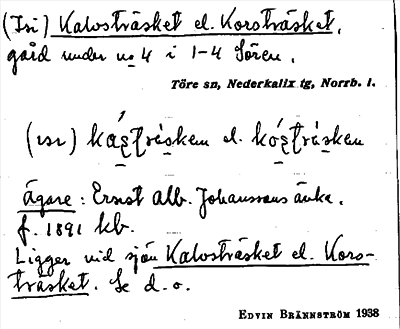 (Isi) Kalosträsket el. Korsträsket,
gård under no 4 i 1-4 Sören.
Töre sn, Nederkalix tg, Norrb. l.
el.
Ägare: Ernst Alb. Johanssons änka,
f. 1891 kb.
Ligger vid sjön Kalosträsket el. Kors-
träsket. Se d. o.
EDVIN BRÄNNSTRÖM 1938